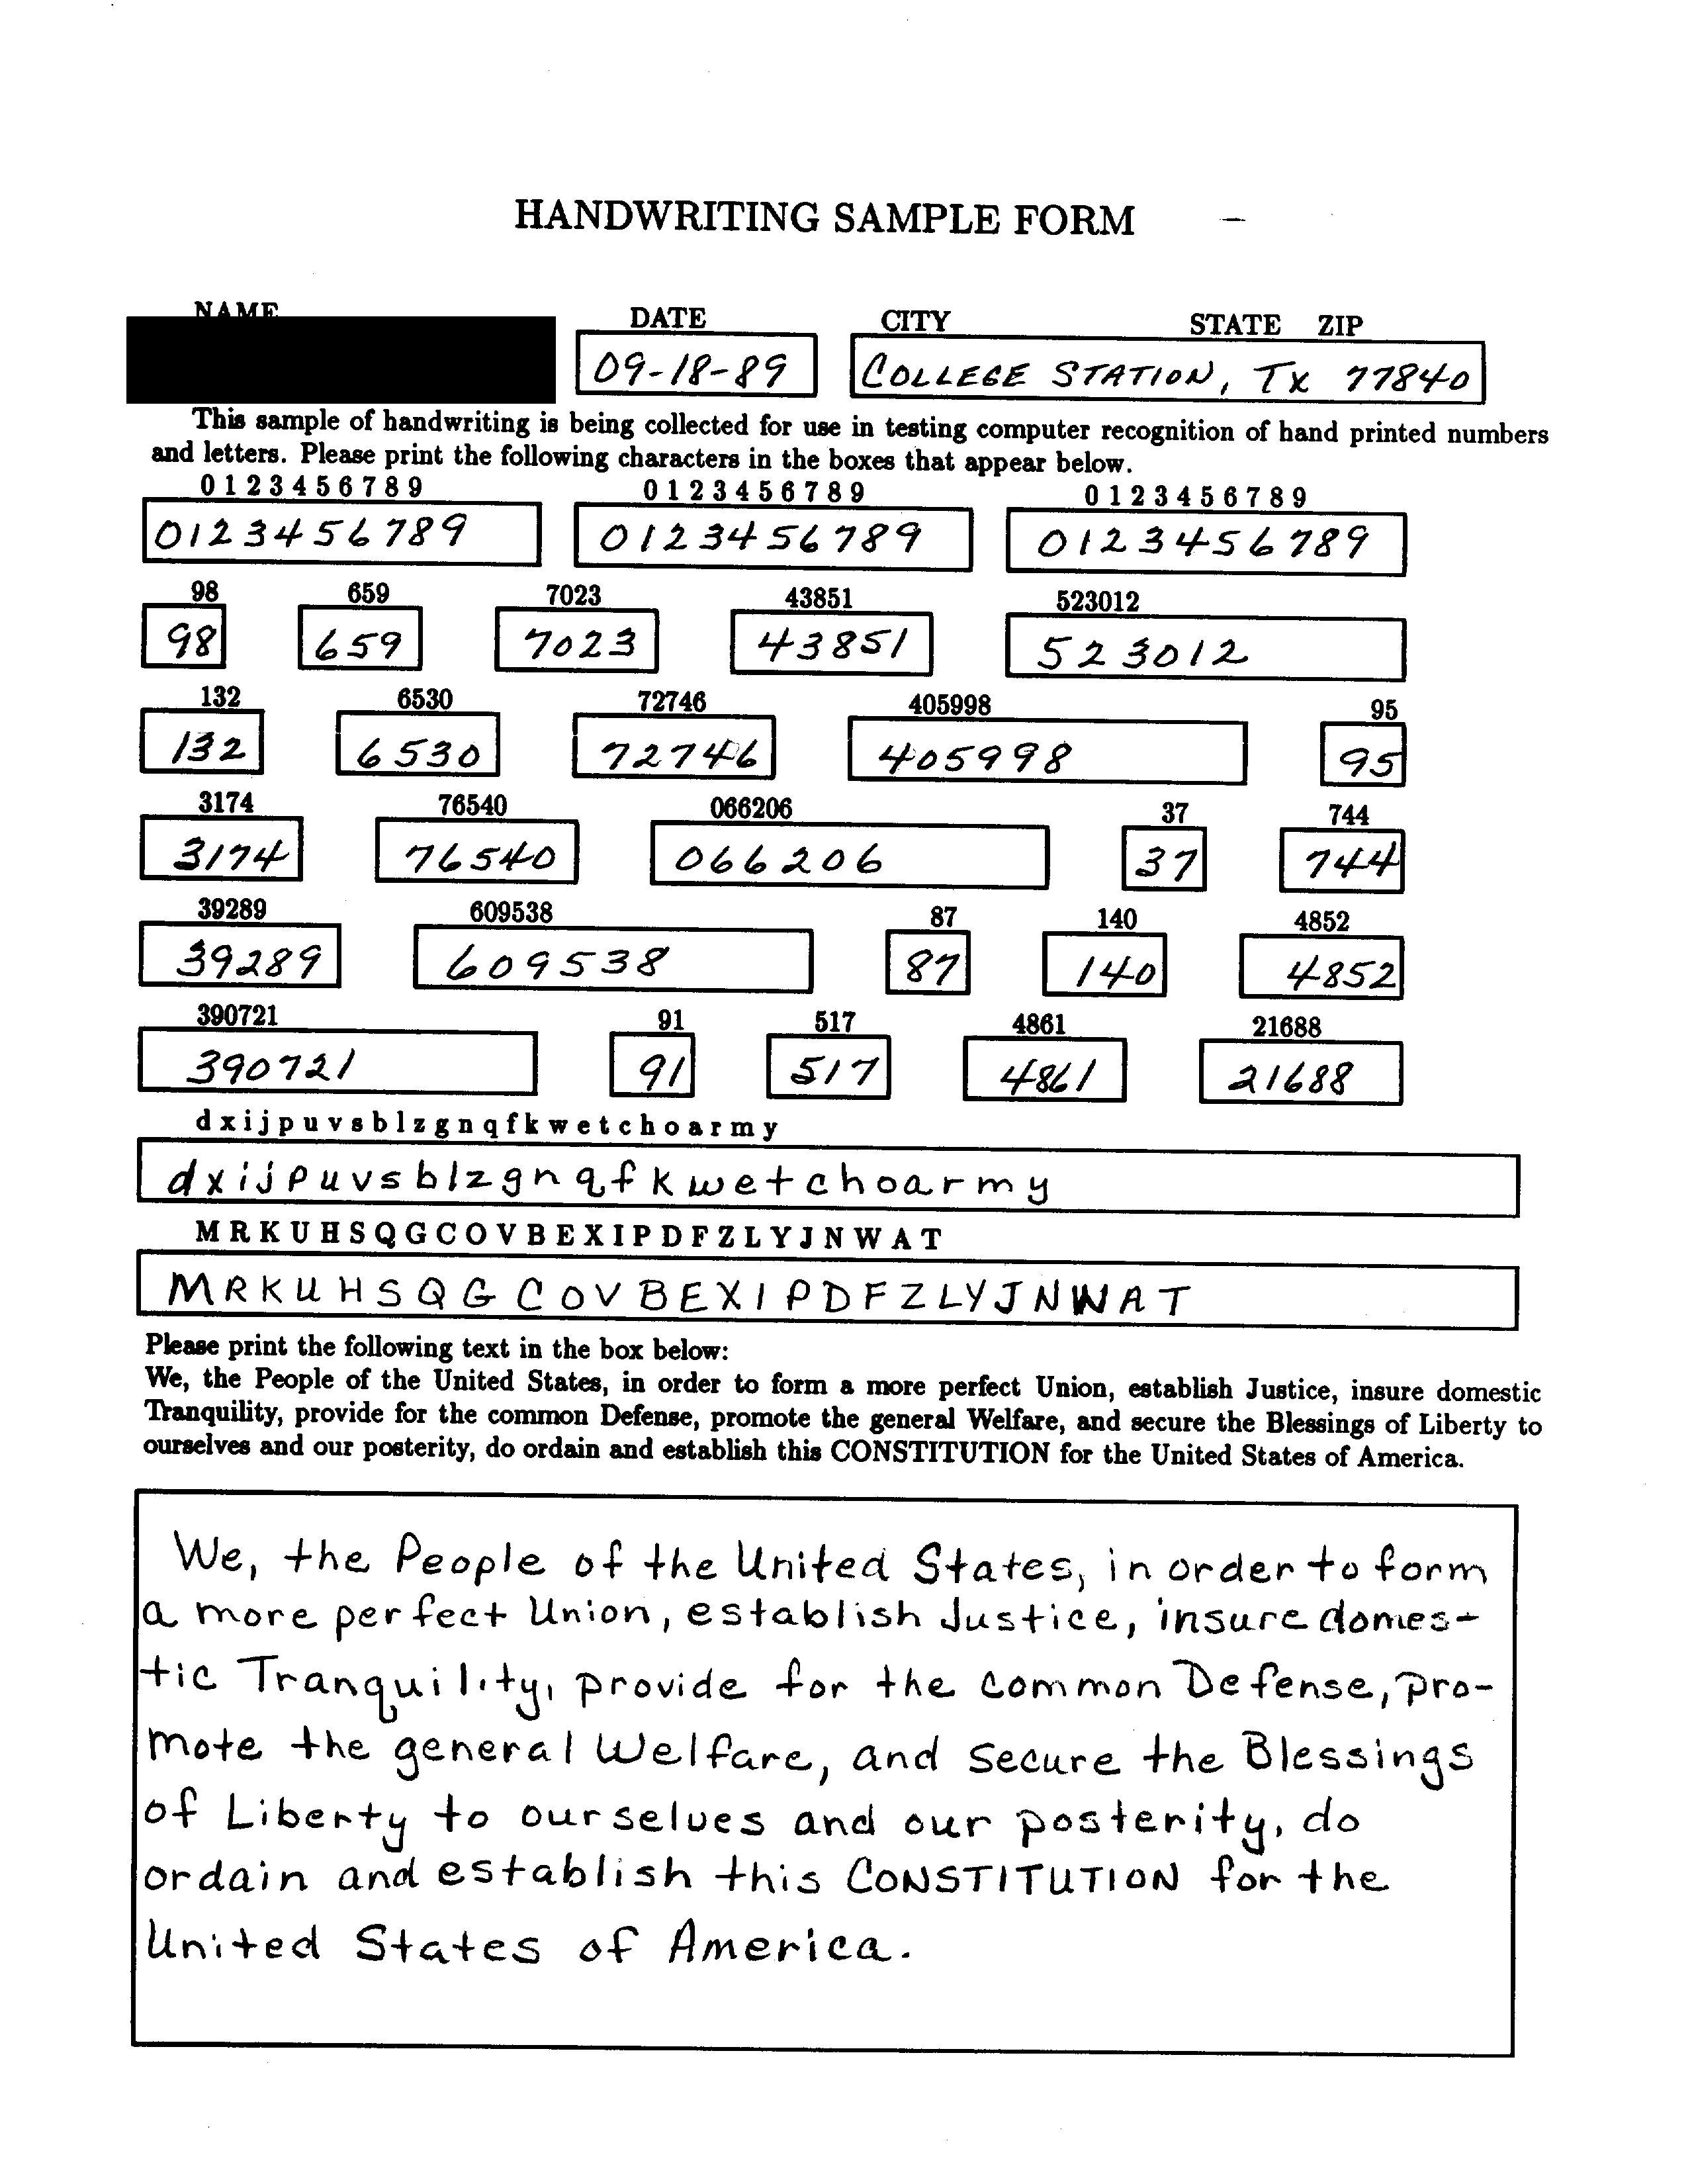 HANDWRITING SAMPLE FORM
NAME DATE CITY STATE ZIP
09-18-89 COLLEGE STATION, TX 77840
This sample of handwriting is being collected for use in testing computer recognition of hand printed numbers
and letters. Please print the following characters in the boxes that appear below.
0 1 2 3 4 5 6 7 8 9 0 1 2 3 4 5 6 7 8 9 0 1 2 3 4 5 6 7 8 9
0123456789 0123456789 0123456789
98 659 7023 43851 523012
98 659 7023 43851 523012
132 6530 72746 405998 95
132 6530 72746 405998 95
3174 76540 066206 37 744
3174 76540 066206 37 744
39289 609538 87 140 4852
39289 609538 87 140 4852
390721 91 517 4861 21688
390721 91 517 4861 21688
d x i j p u v s b l z g n q f k w e t c h o a r m y
d x i j p u v s b l z g n q f k w e t c h o a r m y
M R K U H S Q G C O V B E X I P D F Z L Y J N W A T
M R K U H S Q G C O V B E X I P D F Z L Y J N W A T
Please print the following text in the box below:
We, the People of the United States, in order to form a more perfect Union, establish Justice, insure domestic
Tranquility, provide for the common Defense, promote the general Welfare, and secure the Blessings of Liberty to
ourselves and our posterity, do ordain and establish this CONSTITUTION for the United States of America.
We, the People of the United States, in order to form
a more perfect Union, establish Justice, insure domes-
tic Tranquility, provide for the common Defense, pro-
mote the general Welfare, and secure the Blessings
of Liberty to ourselves and our posterity, do
ordain and establish this CONSTITUTION for the
United States of America.